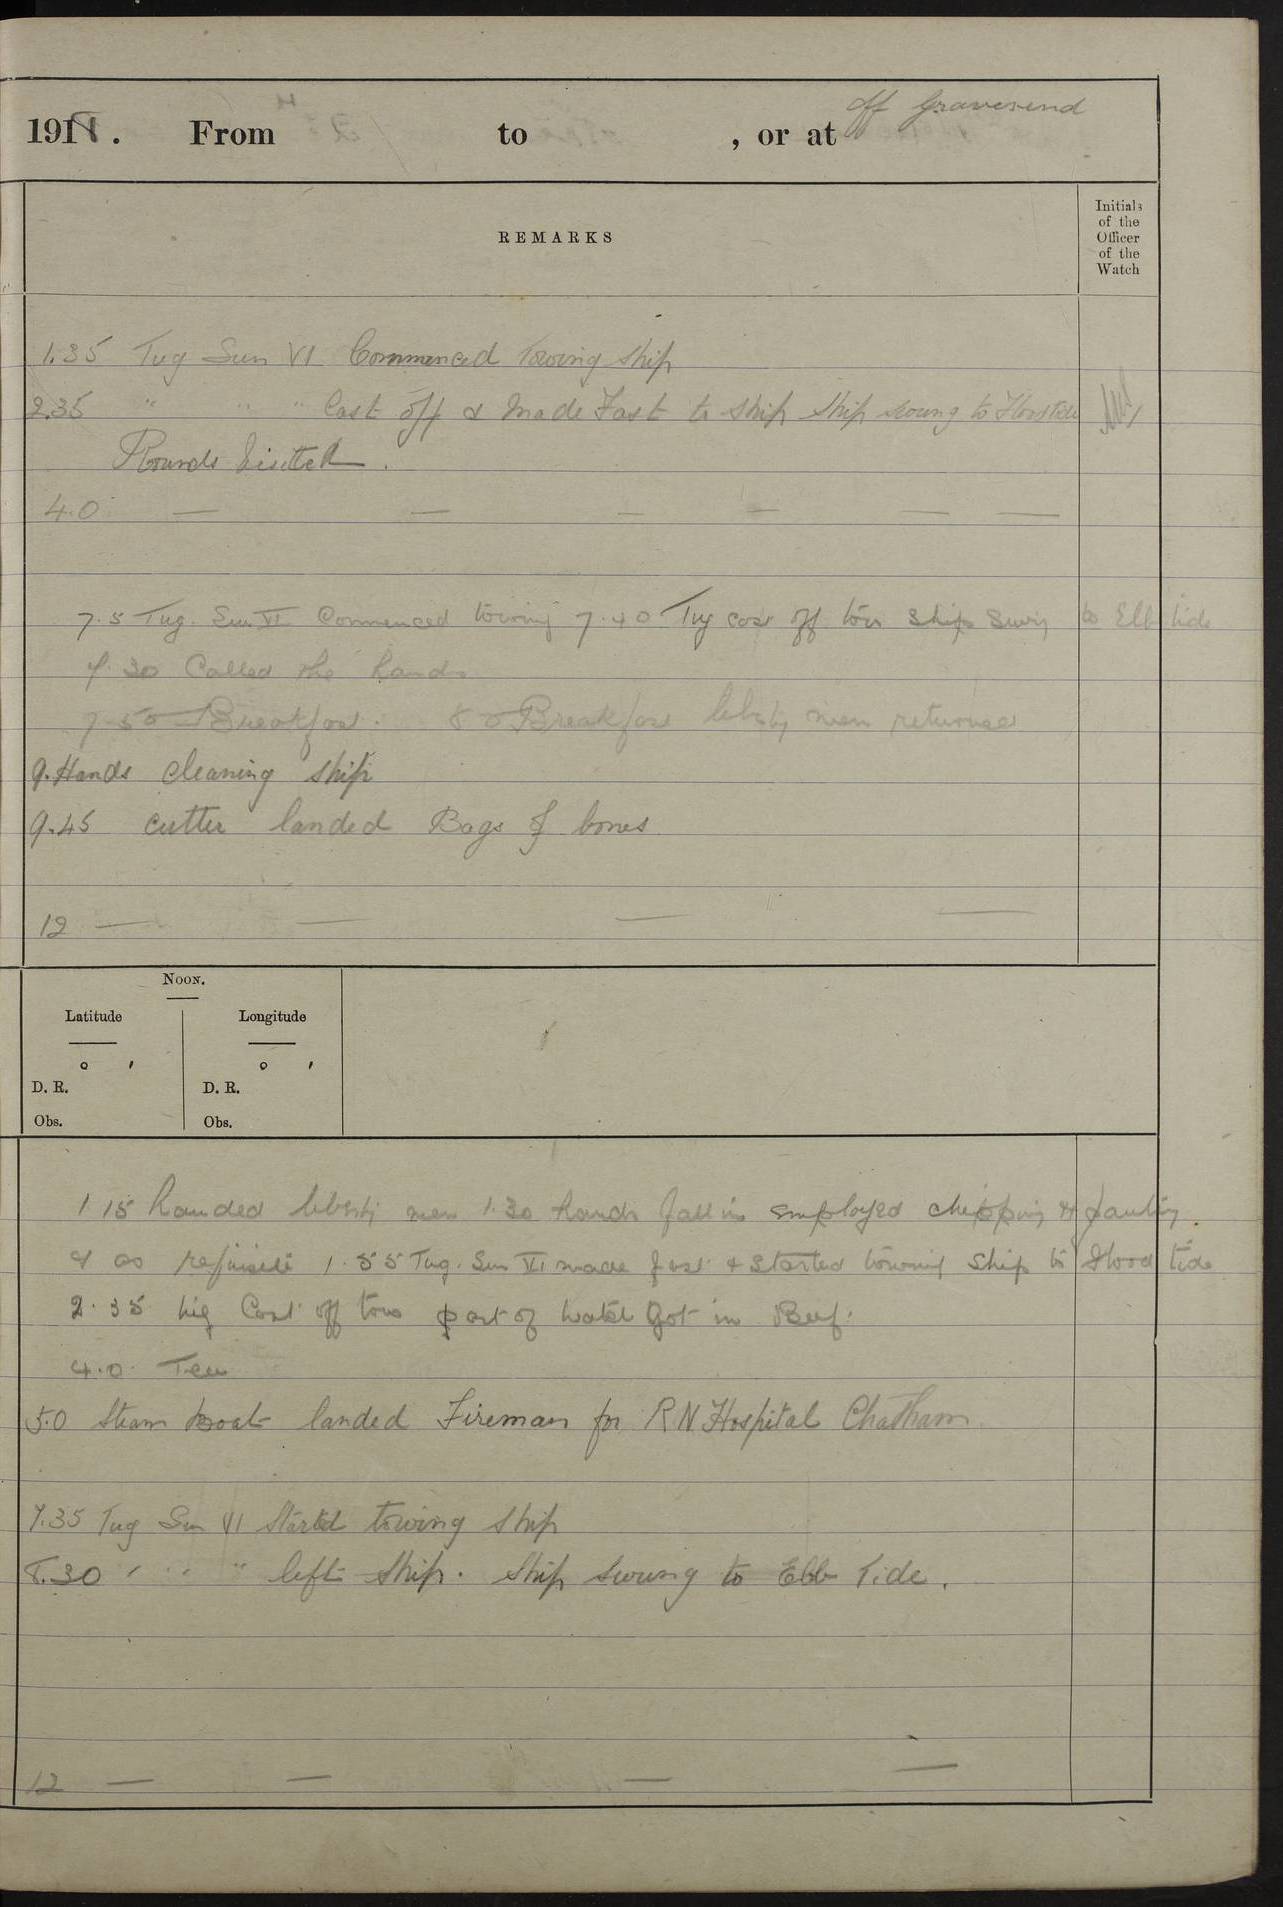 off Gravesend
191 . From to , or at
REMARKS
Initials
of the
Officer
of the
Watch
1.35 Tug Sun VI Commenced Towing Ship
2.35 " " " Cast off & Made Fast to Ship Ship swung to
Rounds Visited .
4.0 — — — — — —
7.5 Tug. Sun VI Commenced towing 7.40 Tug cast off tow Ship Swung to Ebb tide
7.30 Called the hands
7.50 Breakfast. 8.0 Breakfast liberty men returned
9. Hands cleaning ship
9.45 cutter landed Bags of bones
12 — — — —
NOON.
Latitude Longitude
° ′ ° ′
D. R. D. R.
Obs. Obs.
1 15 Landed liberty men 1.30 hands fall in employed chipping &
& as requisite 1.55 Tug. Sun VI made fast & started towing Ship to flood tide
2.35 Cast off tow part of watch Got in Beef.
4.0. Tea
5.0 Steam boat landed Fireman for RN Hospital Chatham
7.35 Tug Sun VI started towing ship
8.30 " " " left Ship. Ship swung to Ebb Tide.
12 — — — —